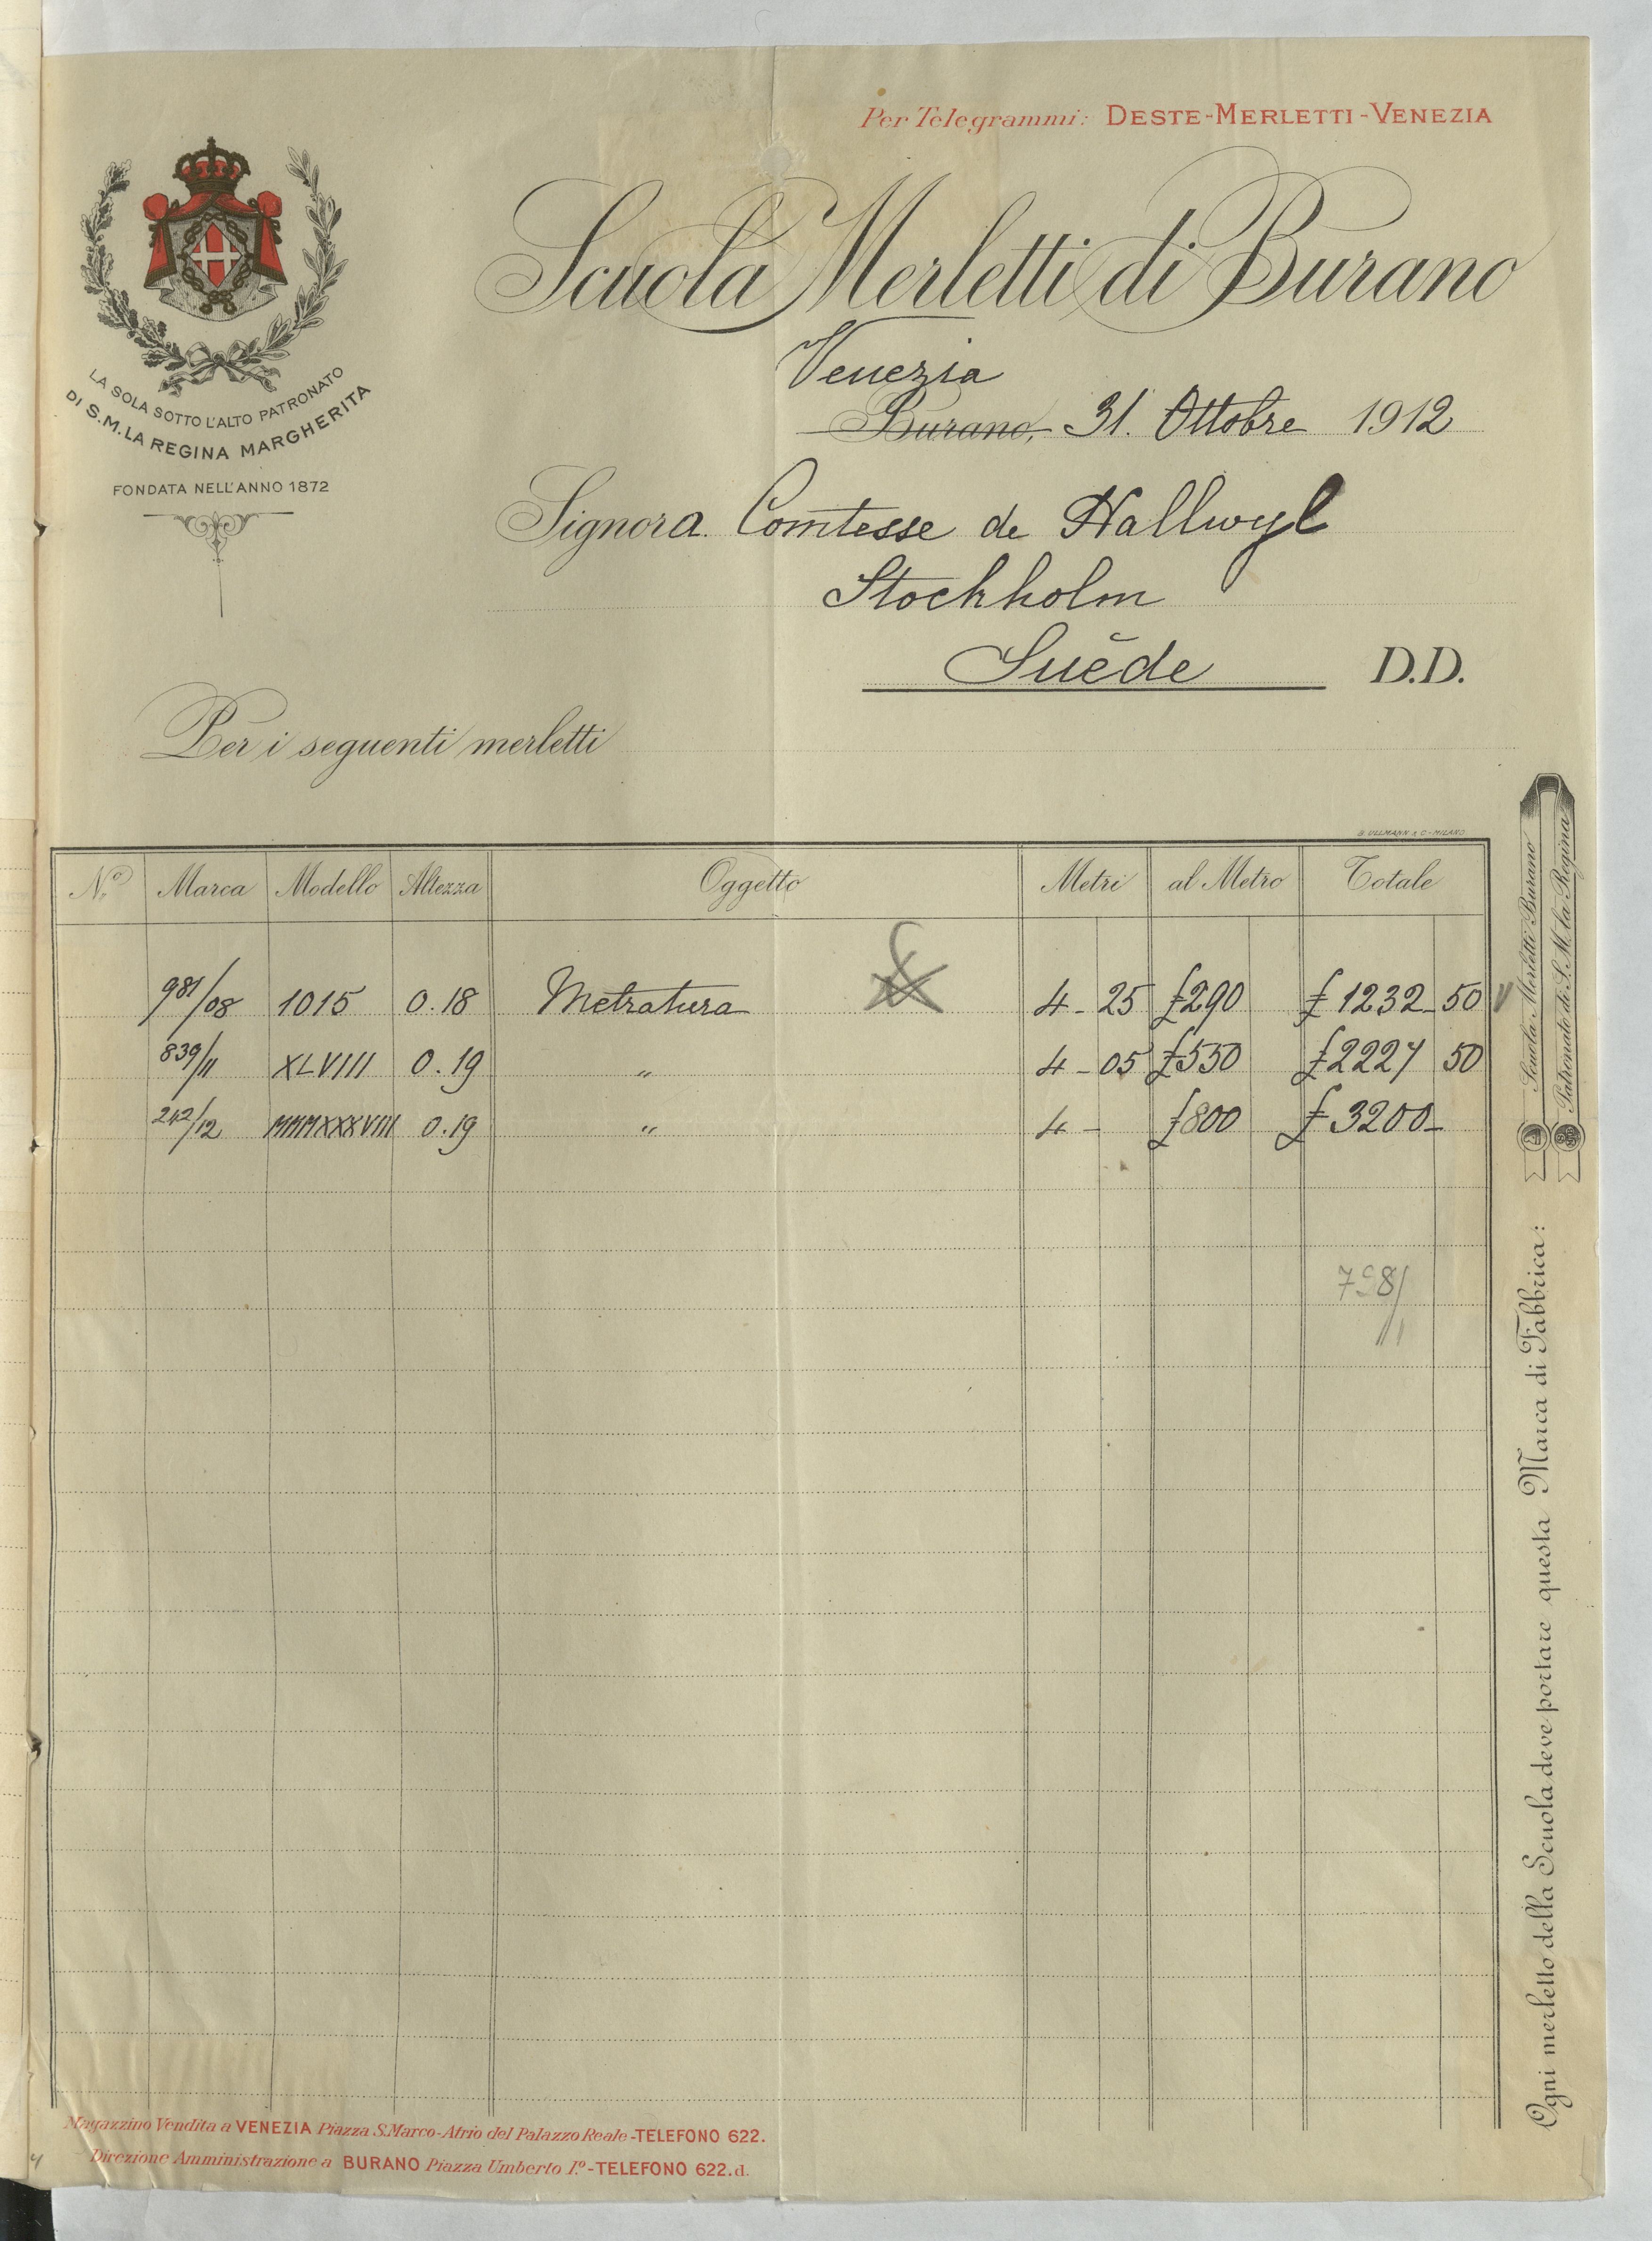 Per Telegrammi: DESTE-MERLETTI-VENEZIA
Scuola Merletti di Burano
LA SOLA SOTTO L'ALTO PATRONATO
DI S.M. LA REGINA MARGHERITA
FONDATA NELL'ANNO 1872
Venezia
Burano, 31. Ottobre 1912
Signora. Comtesse de Hallwyl
Stockholm
Suède D.D.
Per i seguenti merletti
G. ULLMANN & C-MILANO
N.º Marca Modello Altezza Oggetto Metri al Metro Totale
981/08 1015 0.18 Metratura 4-25 £290 £1232-50
839/11 XLVIII 0.19 " 4-05 £550 £2227 50
242/12 MMMXXXVIII 0.19 " 4- £800 £3200-
Scuola Merletti Burano
Patronato di S.M. la Regina
Ogni merletto della Scuola deve portare questa Marca di Fabbrica:
Magazzino Vendita a VENEZIA Piazza S.Marco-Atrio del Palazzo Reale-TELEFONO 622.
Direzione Amministrazione a BURANO Piazza Umberto I.º-TELEFONO 622.d.